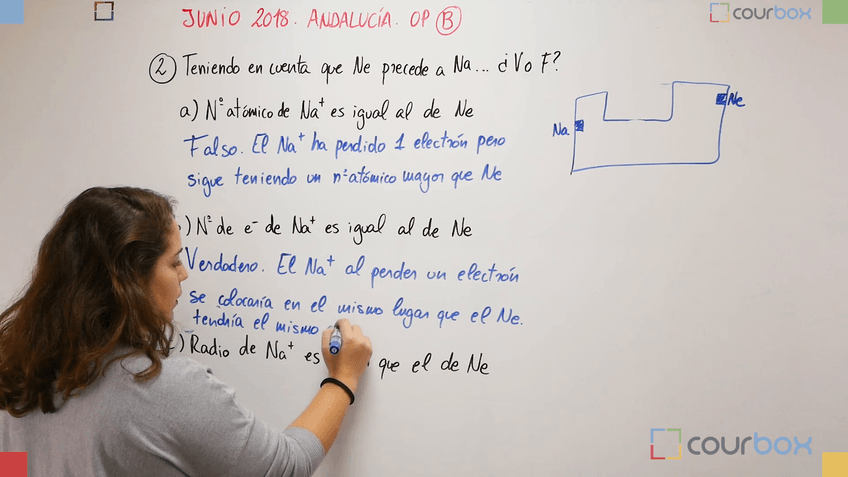 JUNIO 2018. ANDALUCÍA. OP B
courbox
2 Teniendo en cuenta que Ne precede a Na... ¿V o F?
a) Nº atómico de Na⁺ es igual al de Ne
Falso. El Na⁺ ha perdido 1 electrón pero
sigue teniendo un nº atómico mayor que Ne
) Nº de e⁻ de Na⁺ es igual al de Ne
Verdadero. El Na⁺ al perder un electrón
se colocaría en el mismo lugar que el Ne.
tendría el mismo
) Radio de Na⁺ es
que el de Ne
Na
Ne
courbox